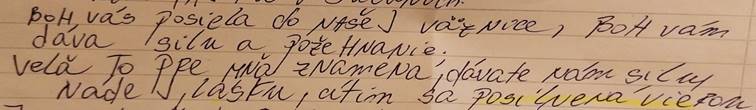 BOH vás posiela do NAŠEJ VÄZNICE, BOH vám
dáva silu a požeHNANIE.
Velă To PPE MŇA ZNAMENÁ, dávate NÁM SILU
NádeJ, LÁSKU, atim sa posilŋena vierom